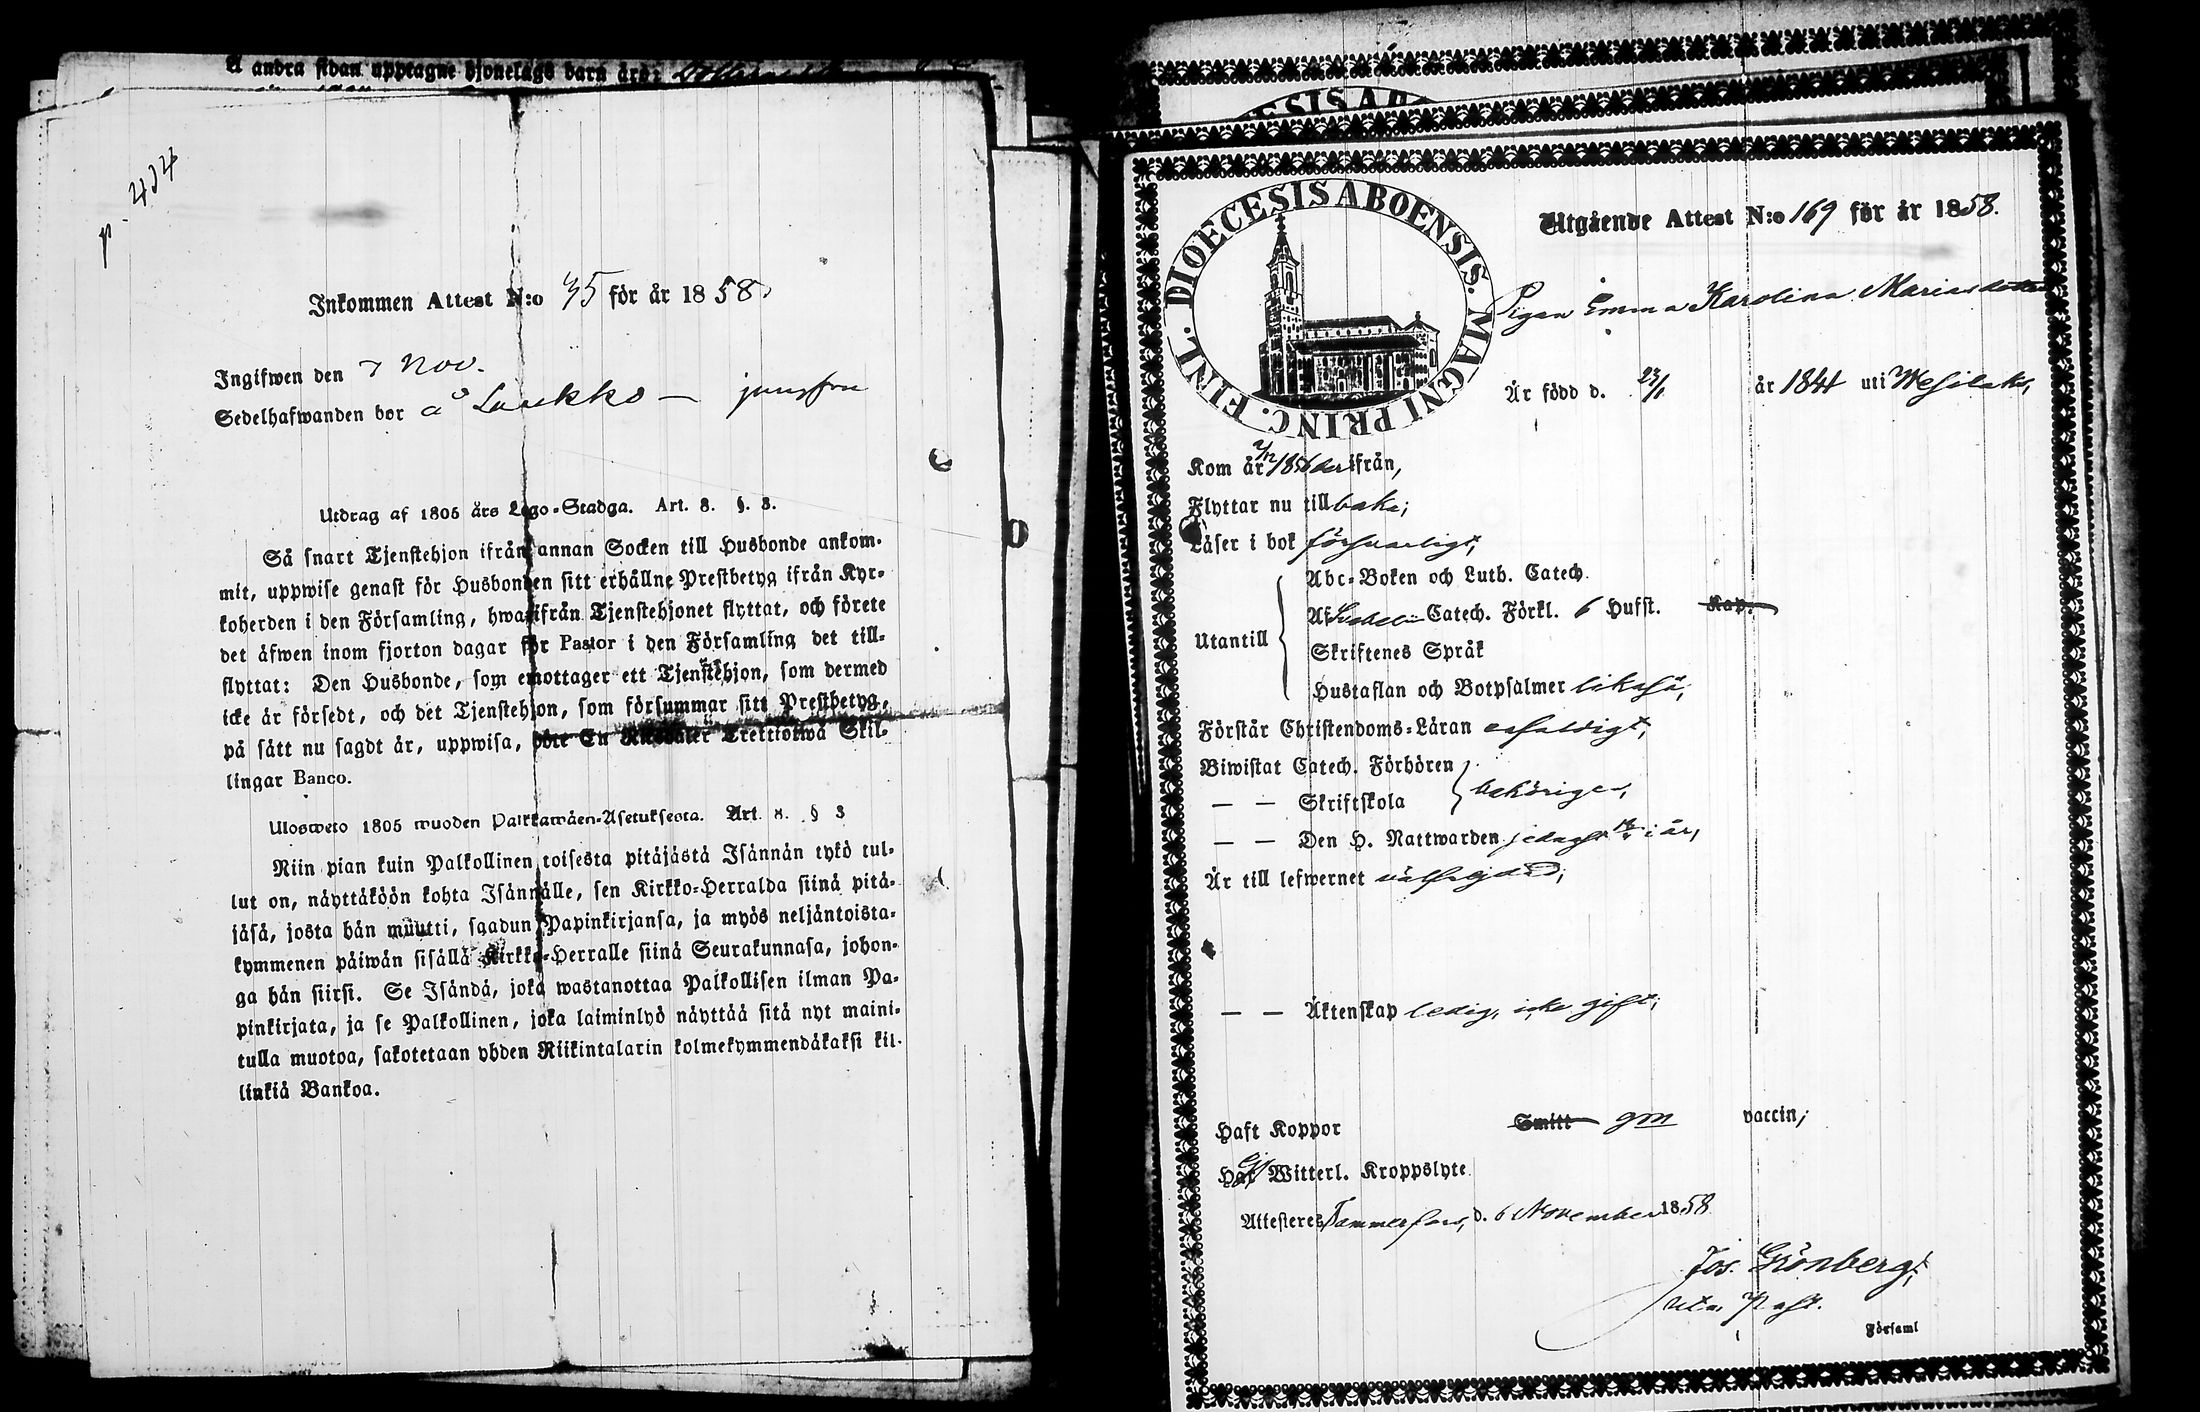 Å andra sidan upptagne hjonelags barn äro:
p. 424
Inkommen Attest N:o 75 för år 1858.
Ingifwen den 7 Nov.
Sedelhafwanden bor å Laukko — jungfru
Utdrag af 1805 års Lego-Stadga. Art. 8. §. 3.
Så snart Tjenstehjon ifrån annan Socken till Husbonde ankom-
mit, uppwise genast för Husbonden sitt erhållne Prestbetyg ifrån Kyr-
koherden i den Församling, hwarifrån Tjenstehjonet flyttat, och förete
det äfwen inom fjorton dagar för Pastor i den Församling det till-
flyttat: Den Husbonde, som emottager ett Tjenstehjon, som dermed
icke är försedt, och det Tjenstehjon, som försummar sitt Prestbetyg,
på sätt nu sagdt är, uppwisa, böte En Riksdaler Trettiotwå Skil-
lingar Banco.
Ulosweto 1805 wuoden Palkkawäen-Asetuksesta. Art. 8. § 3
Niin pian kuin Palkollinen toisesta pitäjästä Isännän tykö tul-
lut on, näyttäköön kohta Isännälle, sen Kirkko-Herralda siinä pitä-
jäsä, josta hän muutti, saadun Papinkirjansa, ja myös neljäntoista-
kymmenen päiwän sisällä Kirkko-Herralle siinä Seurakunnasa, johon-
ga hän siirsi. Se Isändä, joka wastanottaa Palkollisen ilman Pa-
pinkirjata, ja se Palkollinen, joka laiminlyö näyttää sitä nyt maini-
tulla muotoa, sakotetaan yhden Riikintalarin kolmekymmendäkaksi kil-
linkiä Bankoa.
DIOECESIS ABOENSIS. MAGNI PRINC. FINL.
Utgående Attest N:o 169 för år 1858.
Pigan Emma Karolina Mariasdotter
Är född d. 23/1 år 1841 uti Wesilaks,
Kom år 1856 derifrån,
Flyttar nu tillbaka;
Läser i bok försvarligt,
Utantill
Abc-Boken och Luth. Catech.
Af Svebelii Catech. Förkl. 6 Hufst. Kap.
Skriftenes Språk
Hustaflan och Botpsalmer likaså,
Förstår Christendoms-Läran enfaldigt,
Biwistat Catech. Förhören
— — Skriftskola behörigen,
— — Den H. Nattwarden i år,
Är till lefwernet välfrejdad;
— — Äktenskap ledig, icke gift;
Haft Koppor Smitt gm vaccin;
Haf Ej Witterl. Kroppslyte
Attesteres Tammerfors, d. 6 November 1858
Jos. Grönberg,
Past.
Församl